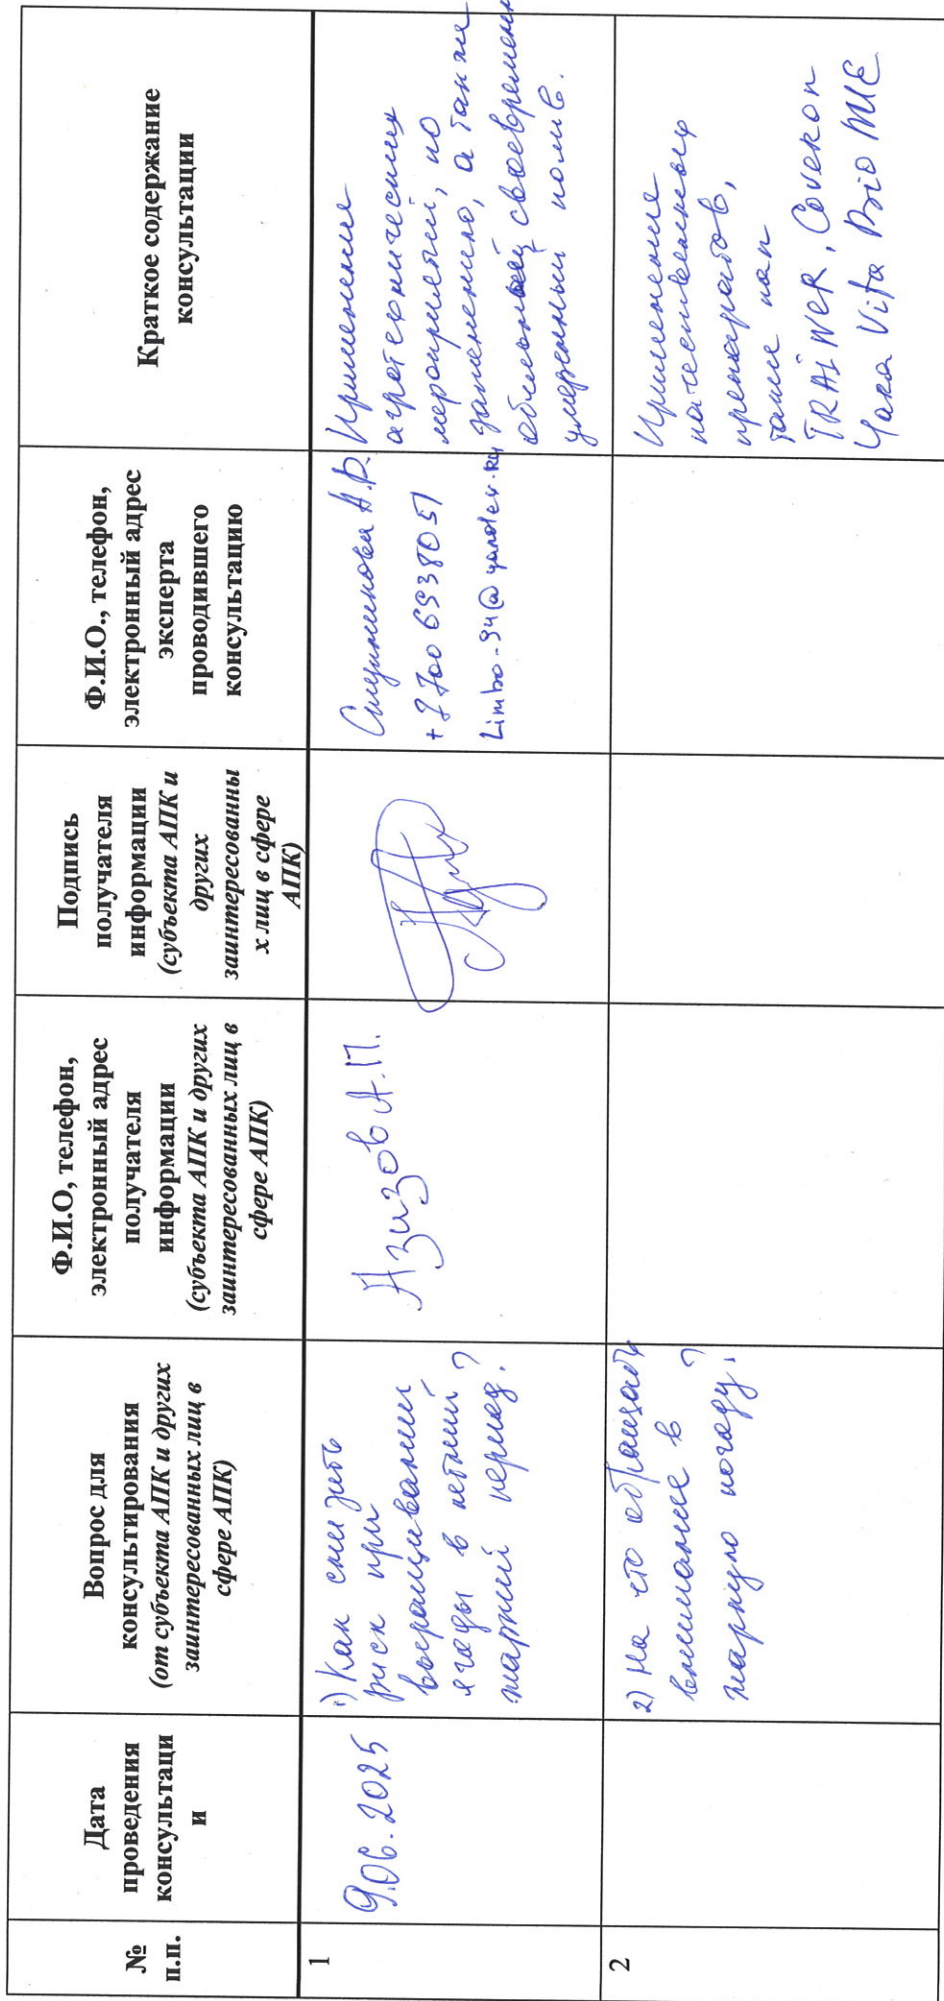 №
п.п.
Дата
проведения
консультаци
и
Вопрос для
консультирования
(от субъекта АПК и других
заинтересованных лиц в
сфере АПК)
Ф.И.О, телефон,
электронный адрес
получателя
информации
(субъекта АПК и других
заинтересованных лиц в
сфере АПК)
Подпись
получателя
информации
(субъекта АПК и
других
заинтересованны
х лиц в сфере
АПК)
Ф.И.О., телефон,
электронный адрес
эксперта
проводившего
консультацию
Краткое содержание
консультации
1
9.06.2025
1) Как снизить
риск при
выращивании
ягоды в летний
жаркий период?
Азизов А.П.
А.Р.
+7700 6938051
Limbo-94@yandex.ru
Применение
агротехнических
мероприятий, по
а также
своевременный
умеренный полив.
2
2) На что обращать
внимание в
жаркую погоду?
Применение
качественных
препаратов,
такие как
TRAINER, Coveron
Yara Vita BioMUE